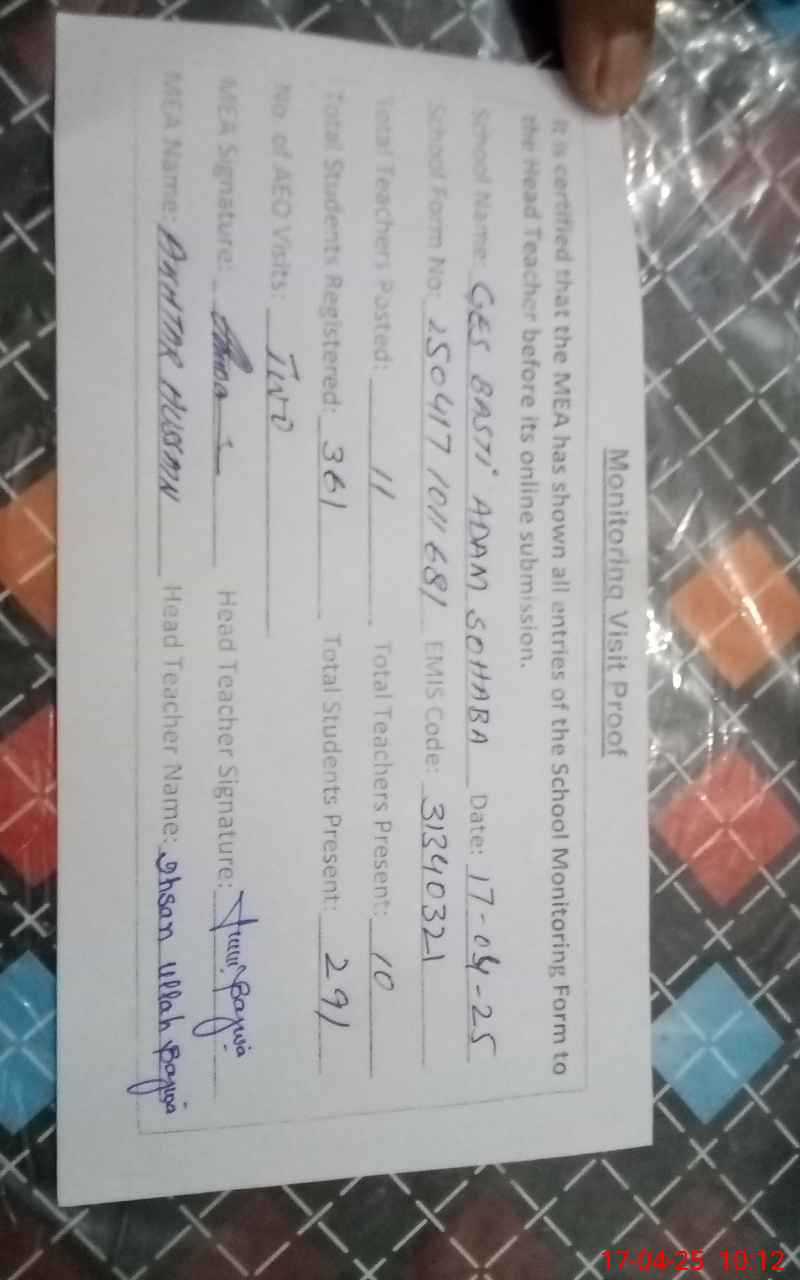 Monitoring Visit Proof
It is certified that the MEA has shown all entries of the School Monitoring Form to
the Head Teacher before its online submission.
School Name: GES BASTI ADAM SOHABA Date: 17-04-25
School Form No: 250417 1011681 EMIS Code: 31340321
Total Teachers Posted: 11 Total Teachers Present: 10
Total Students Registered: 361 Total Students Present: 291
No. of AEO Visits: Two
MEA Signature: Head Teacher Signature: Bajwa
MEA Name: AKHTAR HUSSAIN Head Teacher Name: Ihsan Ullah Bajwa
17-04-25 10:12